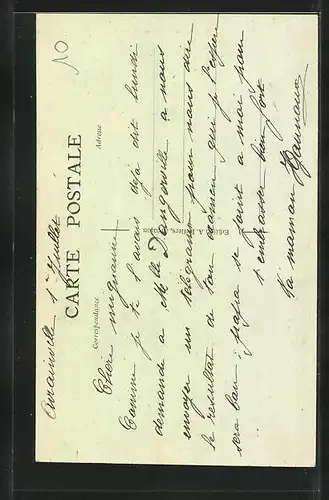 10
Avrainville 1er Juillet
CARTE POSTALE
Correspondance
Adresse
Chère mignonne
Comme je te l'avais déjà dit lundi
demande à Melle Dangerville à nous
envoyer un télégramme pour nous dire
le résultat de ton examen qui j'espère
sera bon papa se joint à moi pour
t'embrasser bien fort
Ta maman